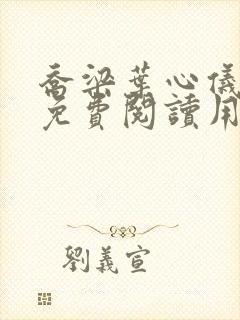 喬梁葉心儀
免費閱讀用
劉義宣